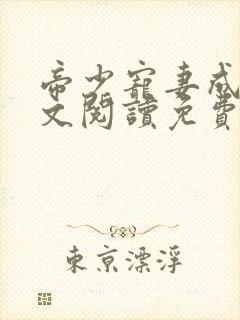 帝少寵妻成
文閱讀免費
東京漂浮